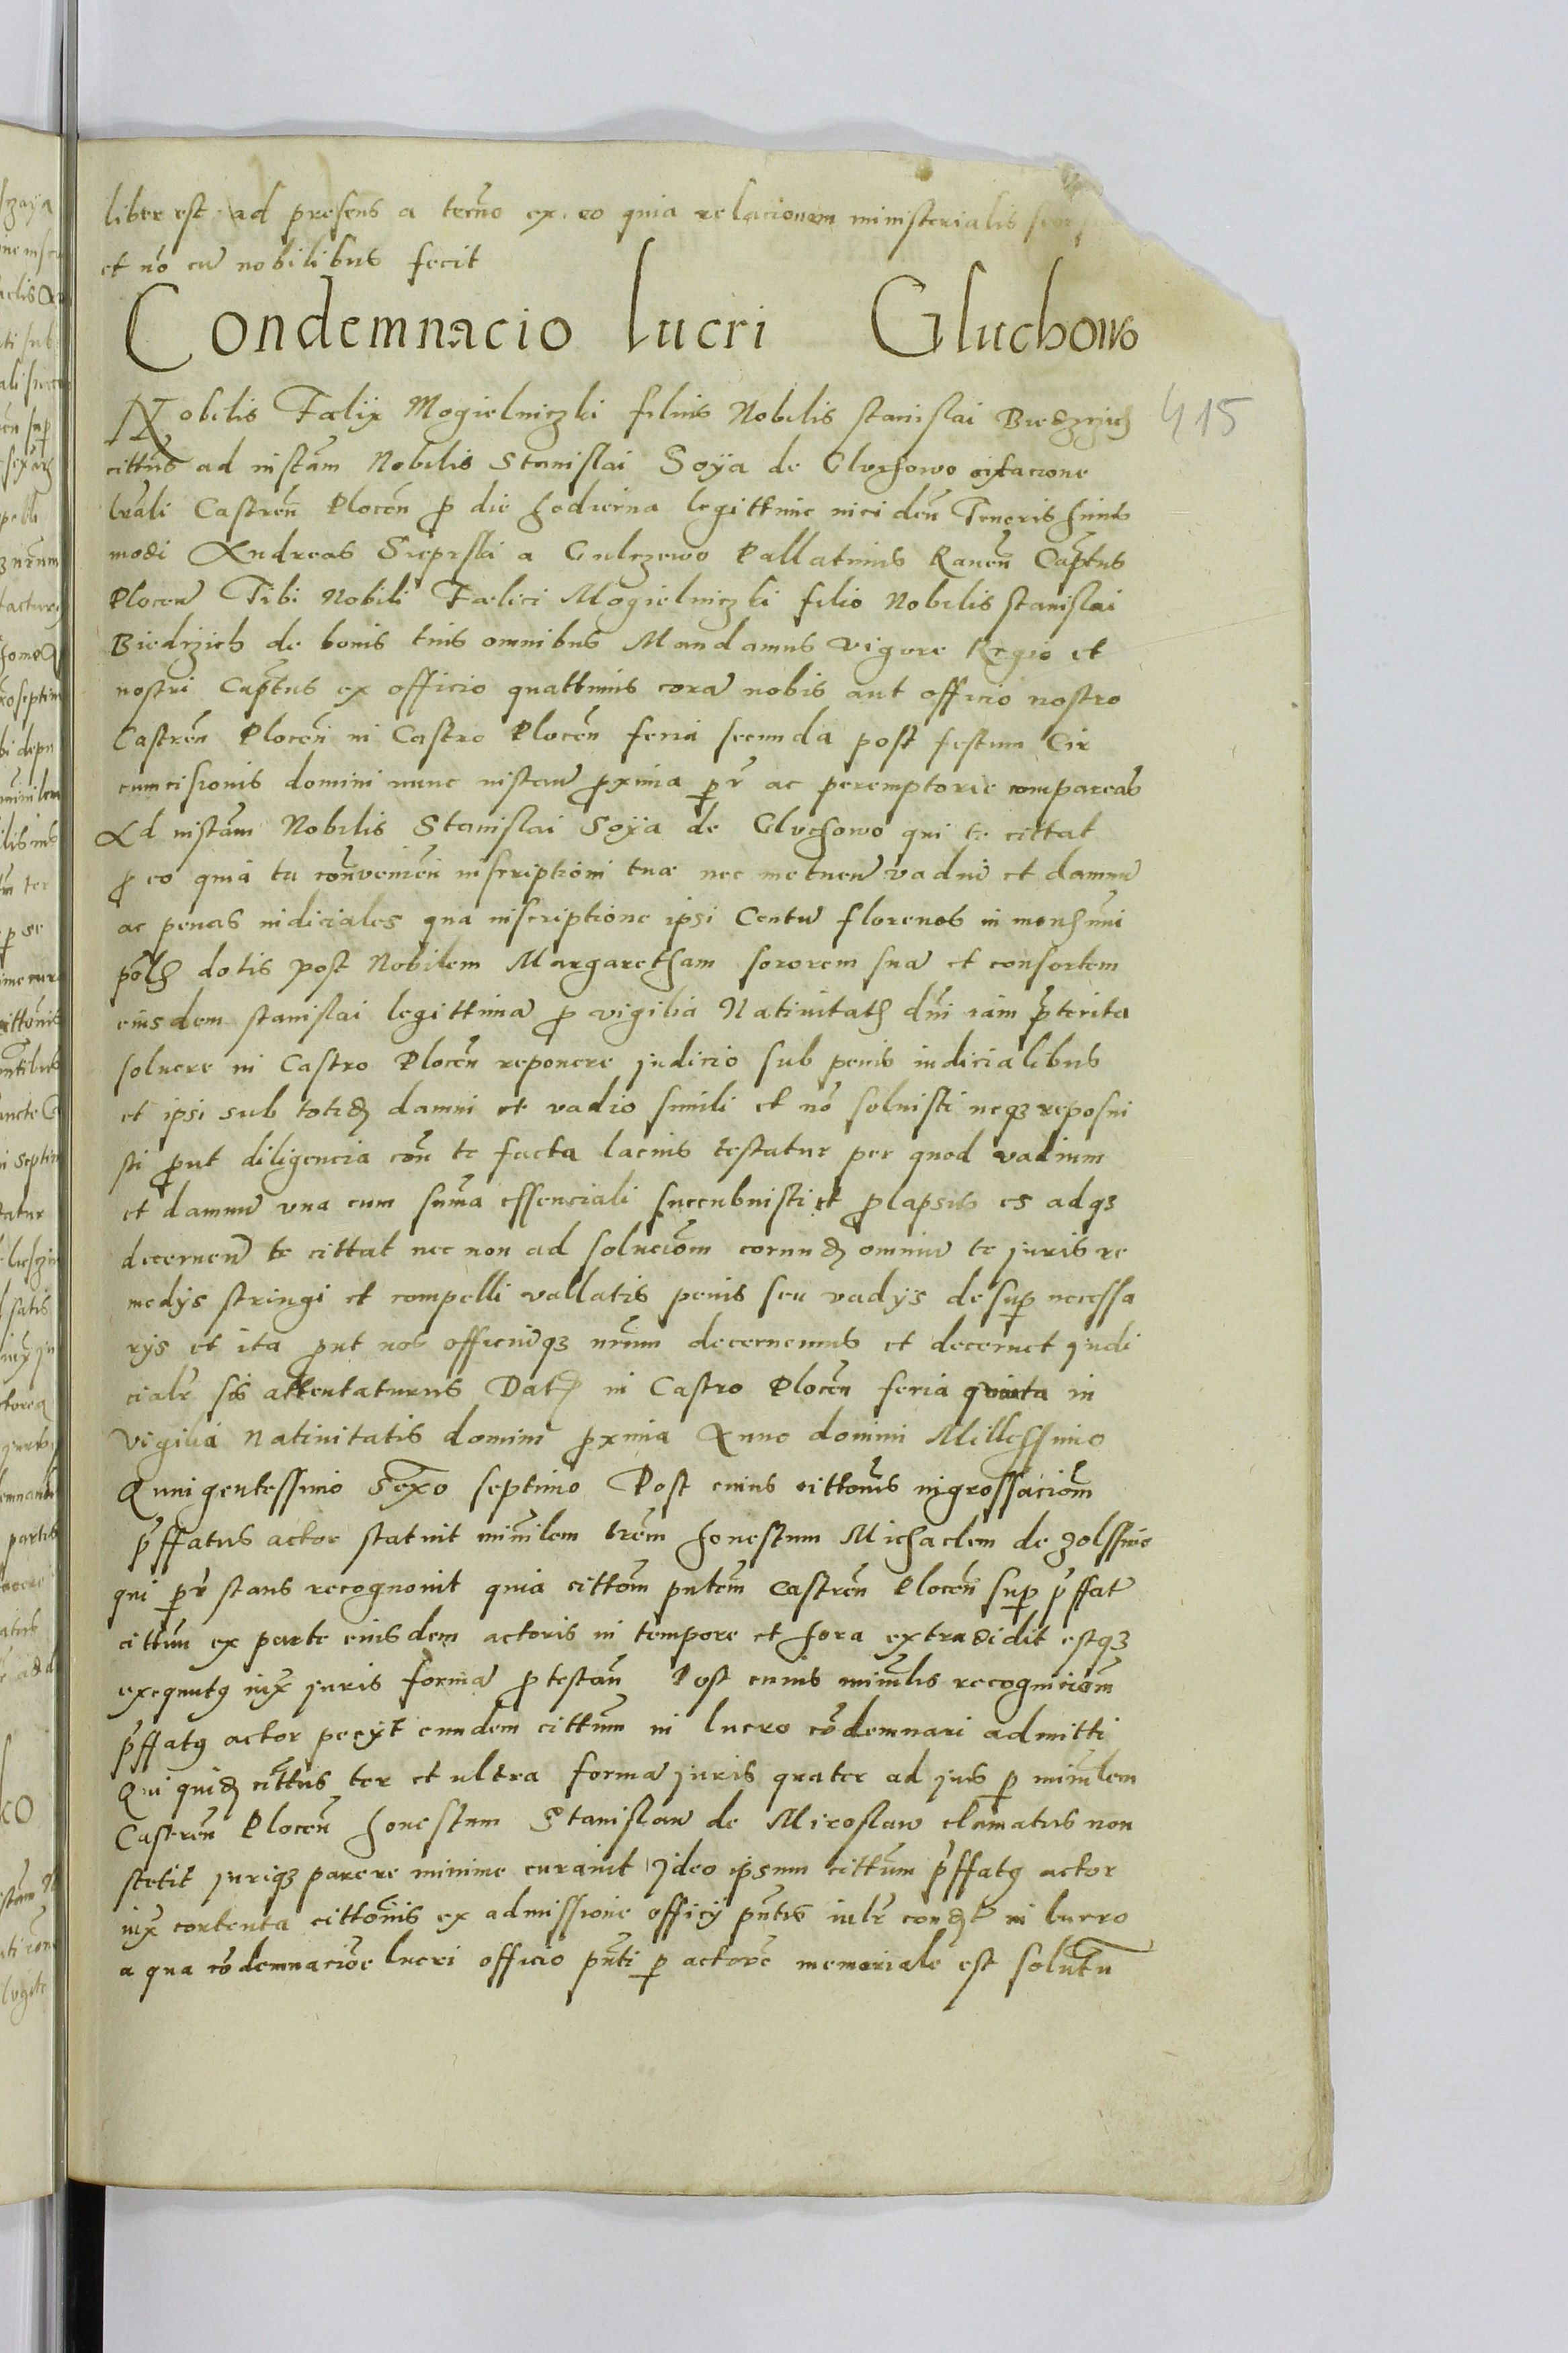 liber est ad presens a termo ex eo quia relacionem ministerialis
et no cu nobilibus fecit
Condemnacio lucri Gluchowo
Nobilis Fælix Mogielniczki filius Nobilis stanislai Biedrzich
cittus ad instam Nobilis Stanislai Soÿa de Gluchowo citacione
lrali Castren Plocen p die hodierna legittime inciden Tenoris huius
modi Andreas Sieprski a Gulczewo Pallatinus Raven Captus
Plocen Tibi Nobili Fælici Mogielniczki filio Nobilis stanislai
Biedrzich de bonis tuis omnibus Mandamus vigore Regio et
nostri Captus ex officio quattinus cora nobis aut officio nostro
Castren Plocen in Castro Plocen feria secunda post festum Cir
cumcisionis domini nunc instan proxima pr ac peremptorie compareas
Ad instam Nobilis Stanislai Soÿa de Gluchowo qui te cittat
p eo quia tu convenien inscriptioni tuæ nec metuen vadiu et damnu
ac penas iudiciales qua inscriptione ipsi Centu florenos in
dotis post Nobilem Margaretham sororem sua et consortem
eiusdem stanislai legittima p vigilia Nativitatis dni iam preterita
soluere in Castro Plocen reponere judicio sub penis iudicialibus
et ipsi sub totid damni et vadio simili et no soluisti neqz reposui
sti put diligencia con te facta lacius testatur per quod vadium
et damnu una cum suma essenciali succubuisti et plapsus es adqz
decernen te cittat nec non ad soluciom eorund omniu te juris re
medÿs stringi et compelli vallatis penis seu vadÿs desup necessa
rÿs et ita put nos officiuqz nrum decernemus et decernet judi
cialr sis attentaturus Dat in Castro Plocen feria quinta in
vigilia Nativitatis domini proxima Anno domini Millessimo
Quingentessimo Sexo septimo Post cuius cittonis ingrossaciom
prffatus actor statuit minilem trem honestum Michaelem de
qui pr stans recognouit quia cittom pntem Castren Plocen sup prffat
cittum ex parte eiusdem actoris in tempore et hora extradidit estqz
exequutq iux juris forma ptestan Post cuius minilis recogniciom
prffatq actor pecÿt eundem cittum in lucro codemnari admitti
Qui quid cittus ter et ultra forma juris quater ad jus p minilem
Castren Plocen honestum Stanislau de Miroslaw clamatus non
stetit juriqz parere minime curauit Ideo ipsum cittum prffatq actor
iux contenta cittonis ex admissione officÿ pntis iulr cond in lucro
a qua codemnacioe lucri officio pnti p actore memoriale est solutu
415